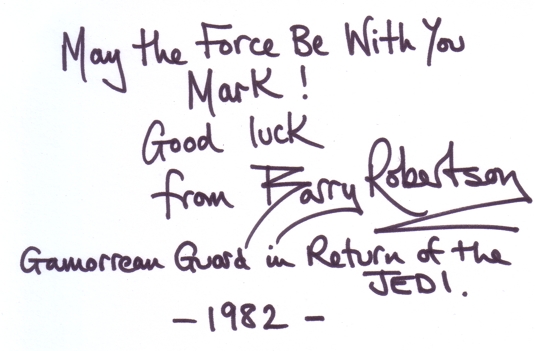 May the Force Be With You
Mark !
Good luck
from Barry Robertson
Gamorrean Guard in Return of the
JEDI.
- 1982 -